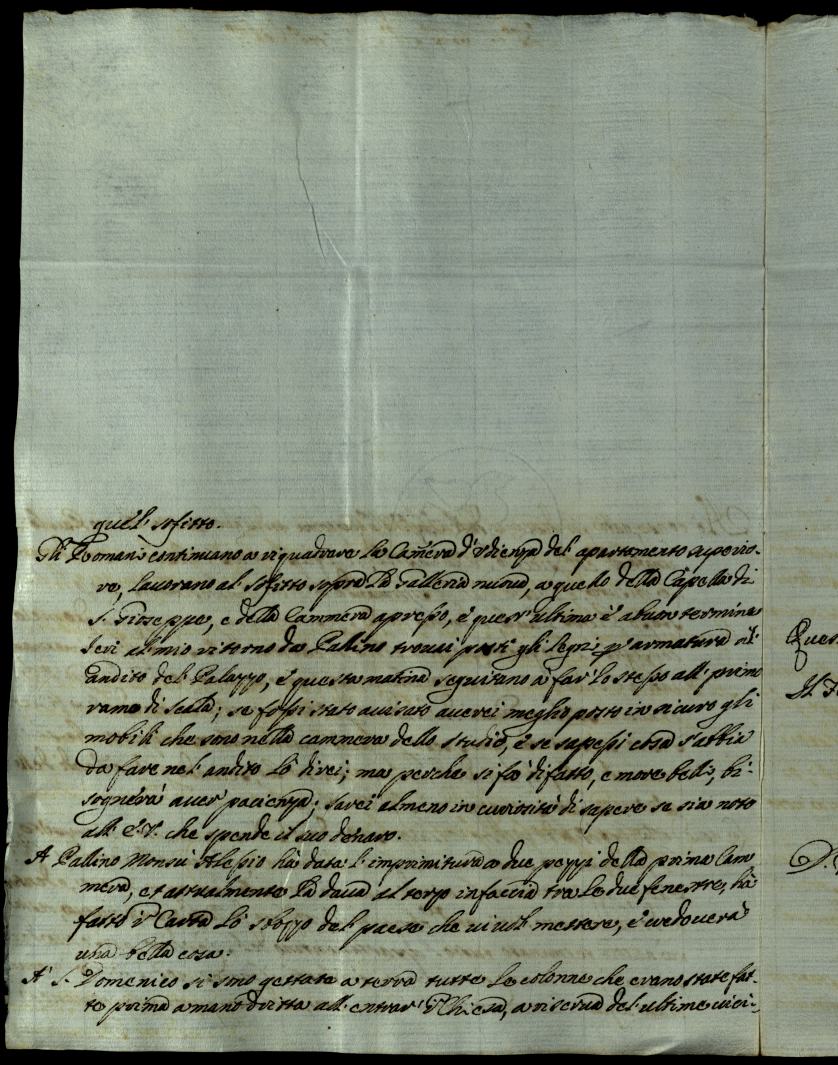 quel sofitto.
Gli Romani continuano a riquadrare la Camera d'Udienza del apartamento superio-
re, lavorano al sofitto sopra la Galleria nuova, a quello della Capella di
S. Gioseppe, e della Cammera apresso, e quest'ultima è a buon termine
Ieri al mio ritorno da Pallino trovai posti gli legni per armatura al'
andito del Palazzo, e questa matina seguitano a far lo stesso all primo
ramo di scala; se fossi stato avisato averei meglio posto in sicuro gli
mobili che sono nella cammera dello studio, e se sapessi cosa s'abbia
da fare nel andito lo direi; ma perche si fa di fatto, e more belli, bi-
sognerà aver pacienza; sarei almeno in curiosità di sapere se sia noto
all E.V. che spende il suo denaro.
A Pallino Monsù Alessio hà data l'imprimitura a due pezzi della prima Cam
mera, et attualmente la dava al terzo in faccia tra le due fenestre, hà
fatto in Carta lo sbozzo del paese che vi vol mettere, e vedo verà
una bella cosa.
A S. Domenico si sono gettate a terra tutte le colonne che erano state fat-
te prima a mano dritta all entrar Chiesa, a riserva del ultime vici-
Ques
Il